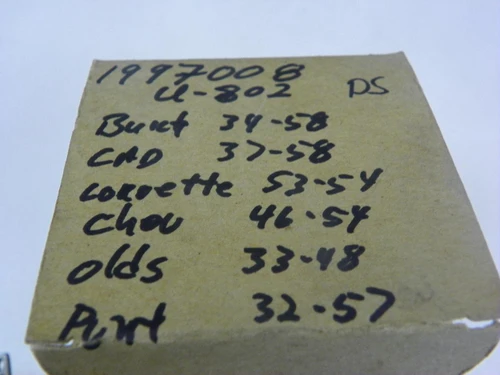 1997008
U-802 DS
Buick 34-58
CAD 37-58
Corvette 53-54
Chev 46-54
Olds 33-48
Pont 32-57